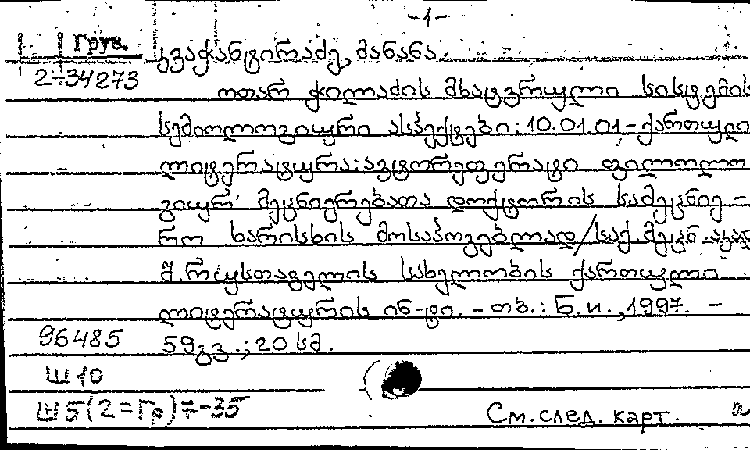 -1-
Груз.
2-34273
კვაჭანტირაძე, მანანა.
ოთარ ჭილაძის მხატვრული სისტემის
სემიოლოგიური ასპექტები: 10.01.01-ქართული
ლიტერატურა: ავტორეფერატი ფილოლო
გიურ მეცნიერებათა დოქტორის სამეცნიე-
რო ხარისხის მოსაპოვებლად/საქ. მეცნ. აკად
შ. რუსთაველის სახელობის ქართული
ლიტერატურის ინ-ტი. - თბ.: Б.и., 1997. -
96485 59გვ.; 20 სმ.
Ш10
Ш5(2=Гр)7-35 См. след. карт.